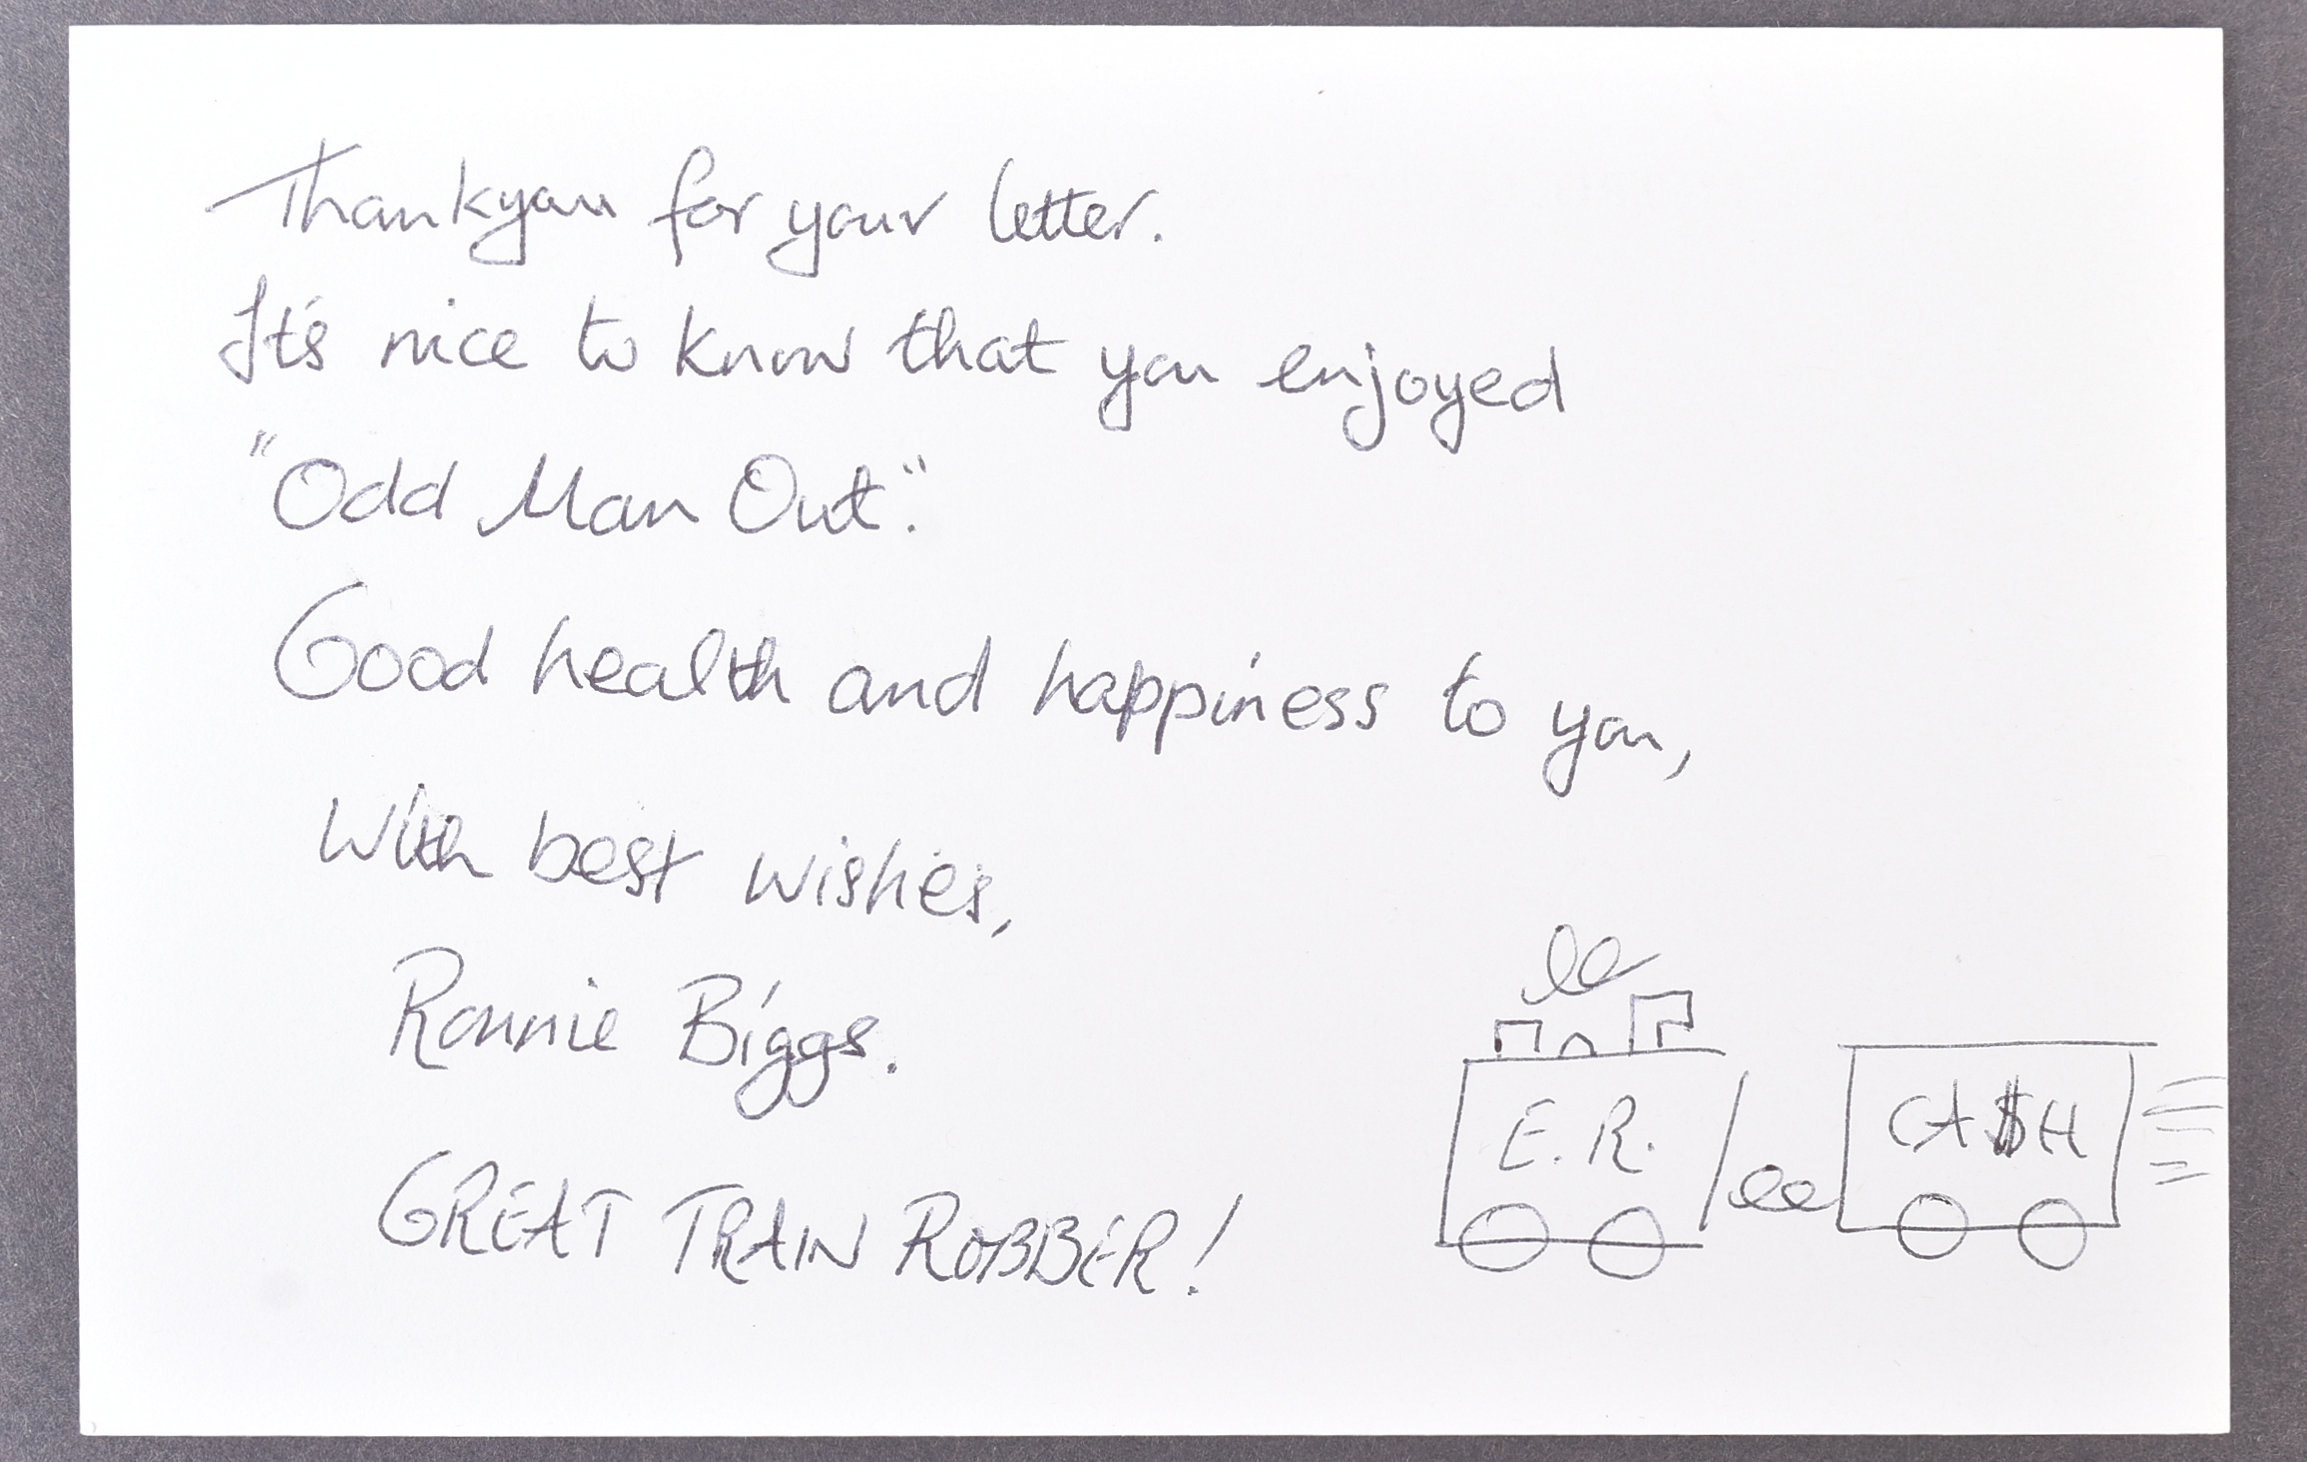 Thankyou for your letter.
It's nice to know that you enjoyed
"Odd Man Out".
Good health and happiness to you,
With best wishes,
Ronnie Biggs.
GREAT TRAIN ROBBER!
E.R.
CA$H